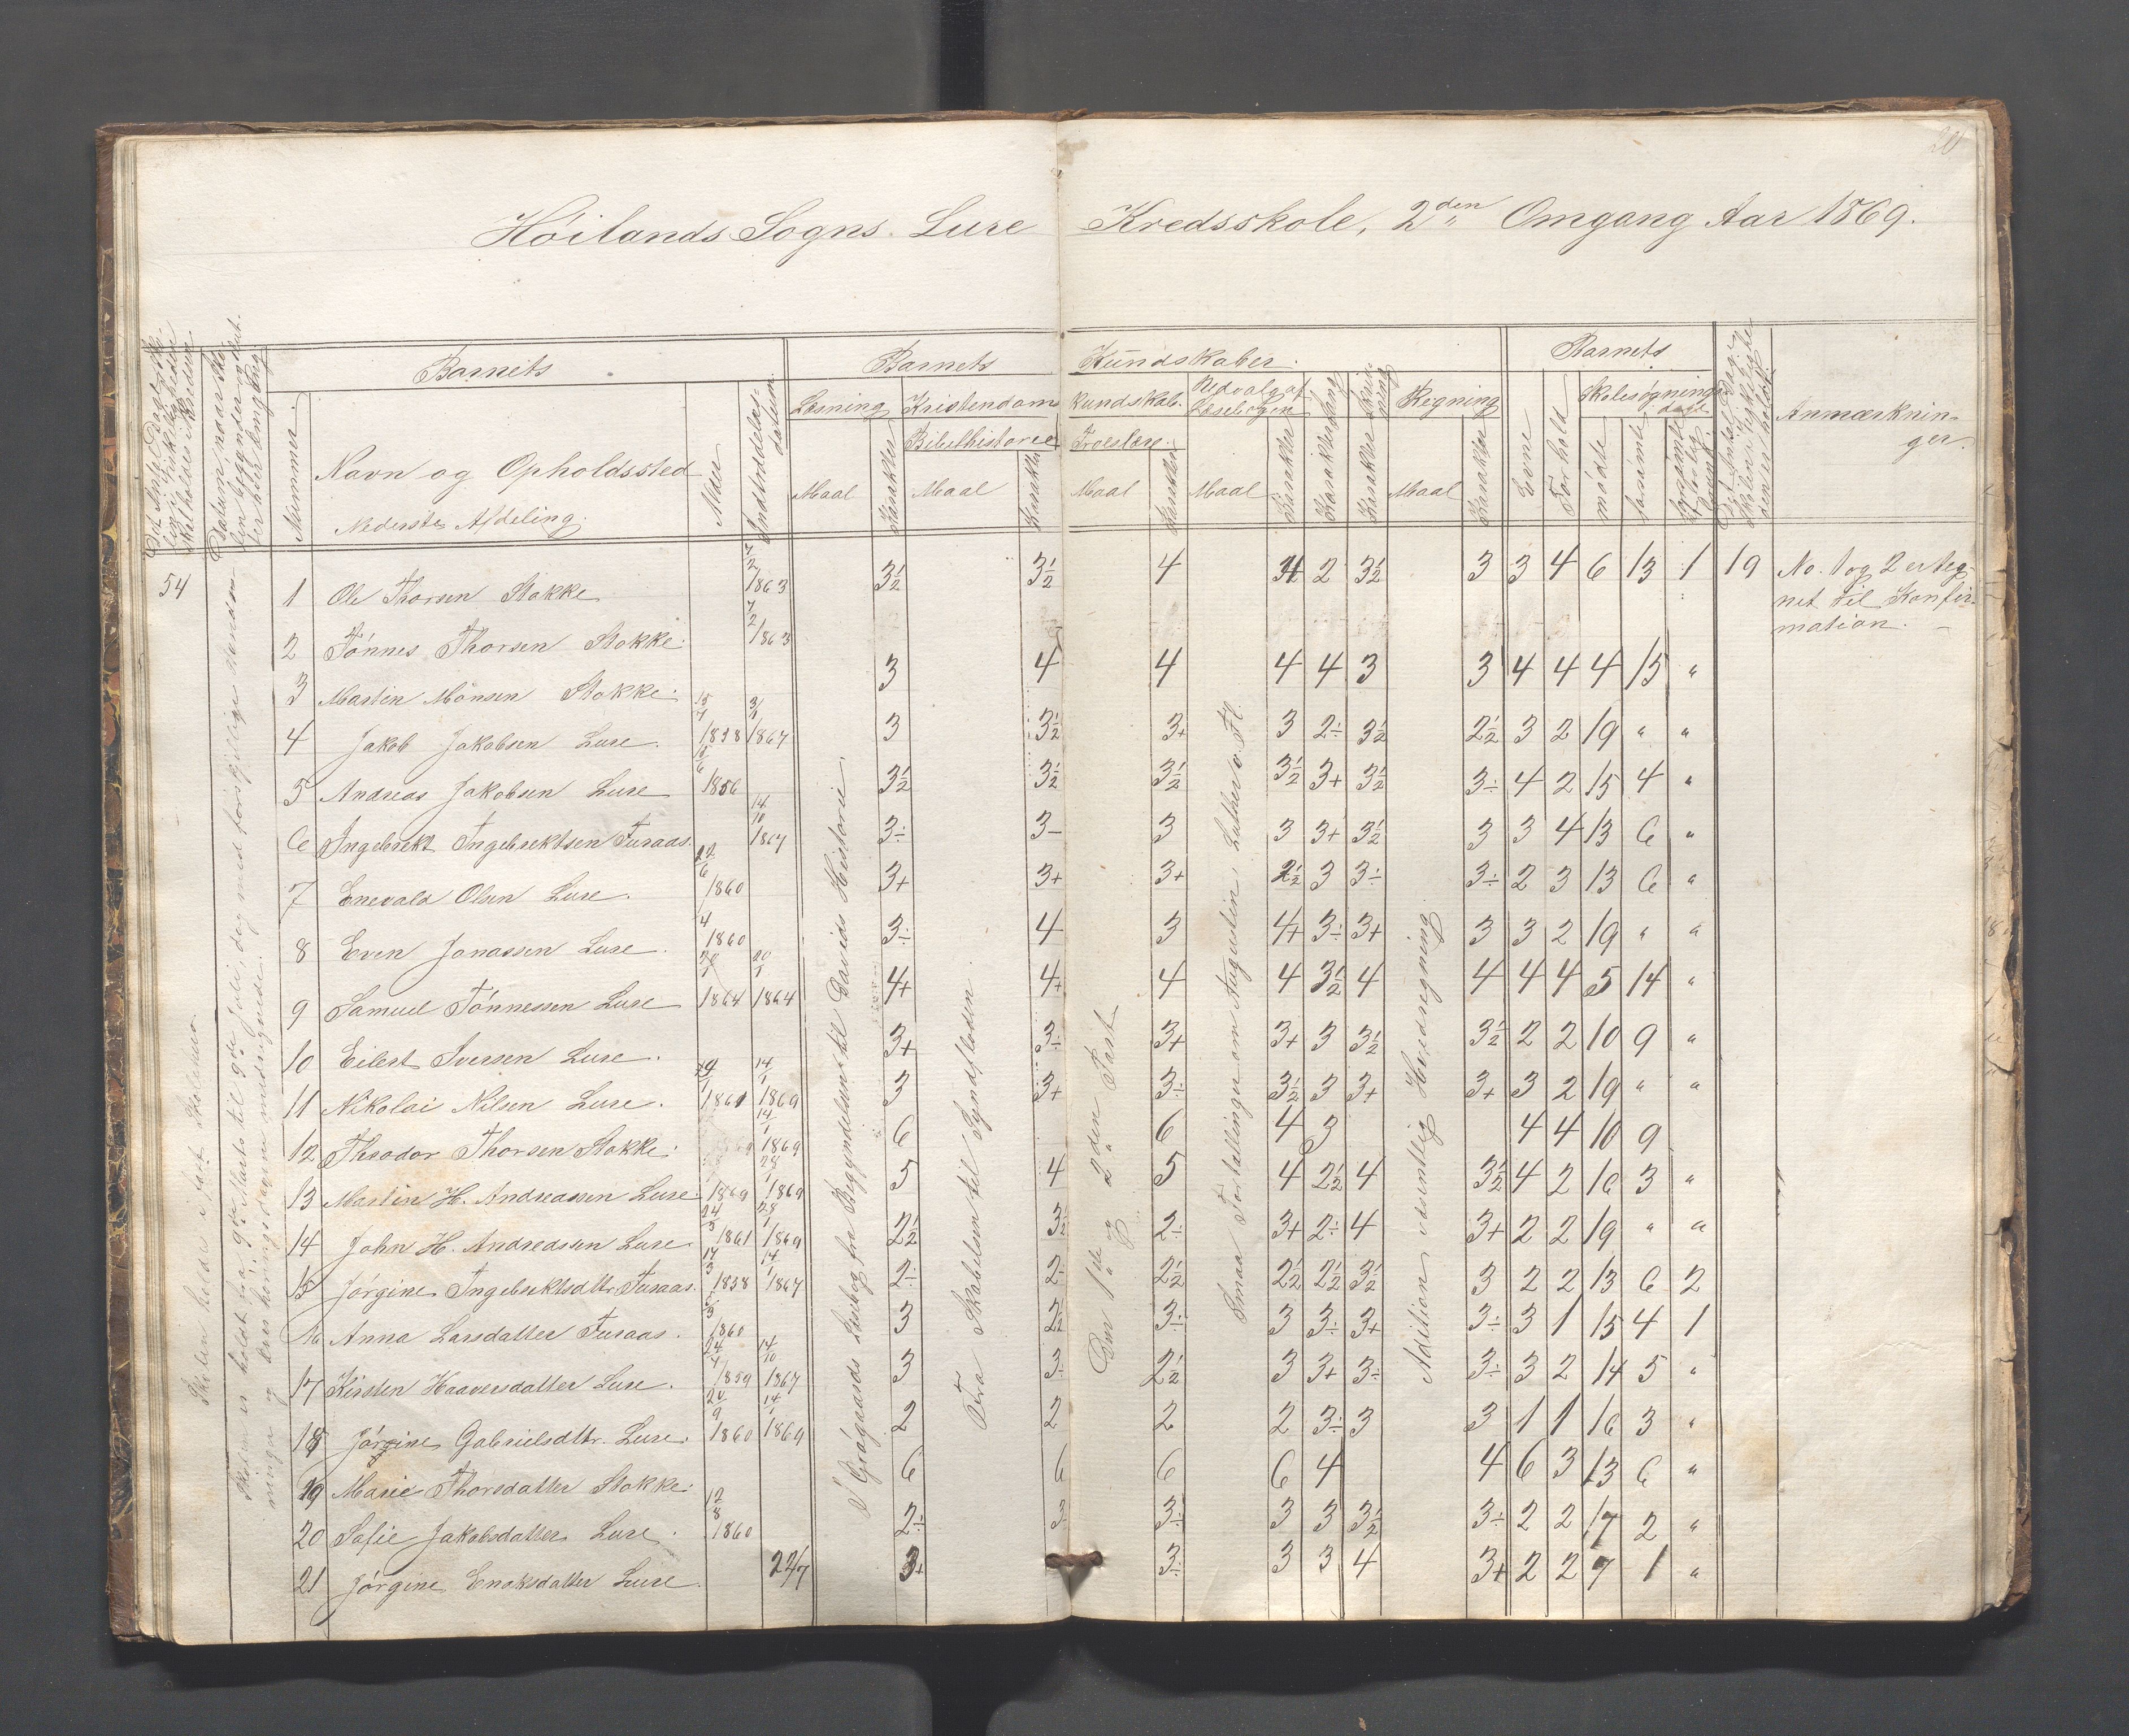 20
Höilands Sogns Lure Kredsskole, 2den Omgang Aar 1869.
Barnets
Barnets Kundskaber.
Barnets
Læsning Kristendoms kundskab. Udvalg af Læsebogen Sang Skrivning Regning
Skolesøgning dage
Anmærkninger.
Nummer.
Navn og Opholdssted
Alder
Indtrædelsesdatum.
Bibelhistorie
Troeslære.
Maal Karakter Maal Karakter Maal Karakter Maal Karakter Karakter Karakter Maal Karakter
Evne Forhold mødte forsømte
Nederste Afdeling.
54
1 Ole Thorsen Stokke 7/2 1863 3½ 3½ 4 4 2 3½ 3 3 4 6 13 1 19 No. 1 og 2 er teg-
net til Konfir-
mation.
2 Tönnes Thorsen Stokke. 7/2 1863
3 Martin Mönsen Stokke. 3 4 4 4 4 3 3 4 4 4 15 "
4 Jakob Jakobsen Lure. 1858 3/1 1867 3 3½ 3+ 3 2÷ 3½ 2½ 3 2 19 " "
5 Andreas Jakobsen Lure 1856 3½ 3½ 3½ 3½ 3+ 3½ 3÷ 4 2 15 4 "
6 Ingebrekt Ingebrektsen Furaas. 14/10 1867 3÷ 3- 3 3 3+ 3½ 3 3 4 13 6 "
7 Enevald Olsen Lure. 22/6 1860 3+ 3+ 3+ 2½ 3 3÷ 3÷ 2 3 13 6 "
8 Even Jonassen Lure. 1860 3÷ 4 3 4+ 3÷ 3+ 3 3 2 19 " "
9 Samuel Tönnessen Lure 1864 20/1 1864 4+ 4+ 4 4 3½ 4 4 4 4 5 14 "
10 Eilert Iversen Lure. 3+ 3÷ 3+ 3+ 3 3½ 3½ 2 2 10 9 "
11 Nikolai Nilsen Lure. 1861 14/1 1869 3 3+ 3÷ 3½ 3 3+ 3+ 3 2 19 " "
12 Theodor Thorsen Stokke. 14/1 1869 6 6 4 3 4 4 10 9
13 Martin H. Andreassen Lure. 1869 28/1 1869 5 4 5 4 2½ 4 3½ 4 2 16 3 "
14 John H. Andreassen Lure. 24/5 1861 28/1 1869 2½ 3½ 2÷ 3+ 2÷ 4 3+ 2 2 19 " "
15 Jörgine Ingebrektsdtr. Furaas. 17/3 1858 14/1 1867 2÷ 2÷ 2½ 2½ 2½ 3½ 3 2 2 13 6 2
16 Anna Larsdatter Furaas. 1860 3 2½ 3÷ 3 3÷ 3+ 3÷ 3 1 15 4 1
17 Kirsten Haaversdatter Lure. 1859 14/10 1867 3 3÷ 2½ 3 3+ 3÷ 3÷ 3 2 14 5 "
18 Jörgine Gabrielsdtr. Lure. 20/9 1860 14/1 1869 2 2 2 2 3÷ 3 3 1 1 16 3 "
19 Marie Thorsdatter Stokke. 6 6 6 6 4 4 6 3 13 6 "
20 Sofie Jakobsdatter Lure. 12/8 1860 2÷ 3 3÷ 3 3 3½ 3÷ 2 2 17 2 "
21 Jörgine Enoksdatter Lure. 22/7 3+ 3÷ 3 3 4 3+ 2 2 7 1 "
Skolen holdes i fast Skolehuus.
Skolen er holdt fra 9de Marts til 9de Juli, dog med forskjellige Afbræk-
I Grögaards Læsebog fra Begyndelsen til Davids Historie.
Fra Skabelsen til Syndfloden.
Den 1ste og 2den Part
Smaa Fortællinger om Augustin, Luther o. Fl.
Adition væsentlig Hovedregning.